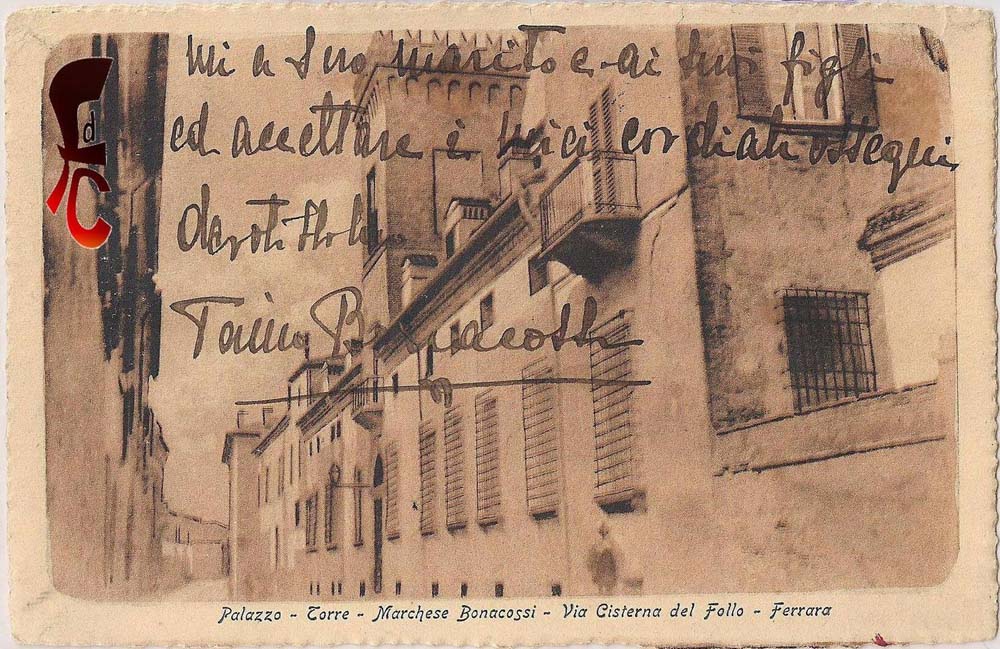 mi a Suo marito e ai suoi figli
ed accettare i miei cordiali ossequi
Bonacossi
Palazzo - Torre - Marchese Bonacossi - Via Cisterna del Follo - Ferrara
d
C